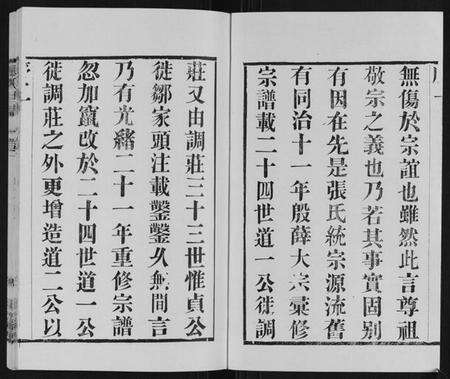 無傷於宗誼也雖然此言尊祖
敬宗之義也乃若其事實固別
有因在先是張氏統宗源流舊
有同治十一年殷薛大宗彙修
宗譜載二十四世道一公徙調
莊又由調莊三十三世惟貞公
徙鄒家頭注載鑿鑿久無間言
乃有光緒二十一年重修宗譜
忽加竄改於二十四世道一公
徙調莊之外更增造道二公以